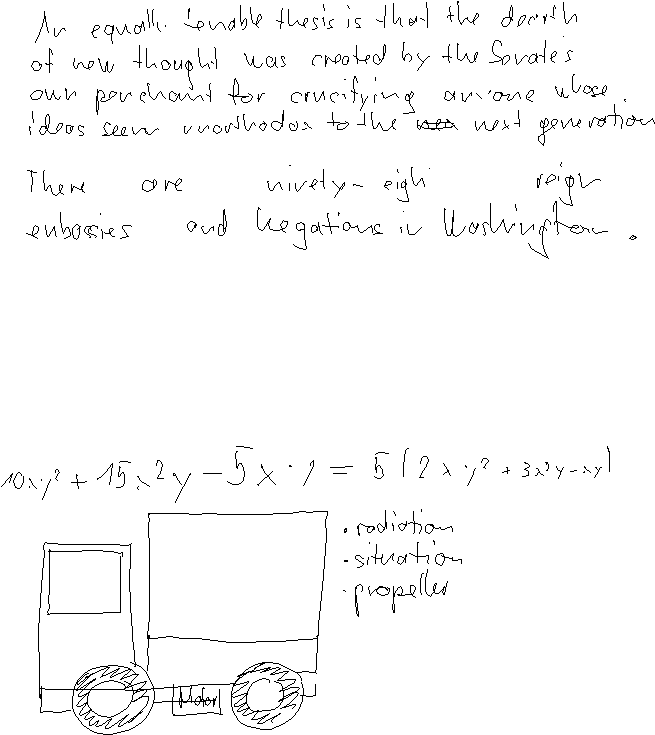 An equall tenable thesis is that the dearth
of new thought was created by the Senate's
own penchant for crucifying anyone whose
ideas seem unorthodox to the next generation
There are ninety-eigh reign
embassies and legations in Washington.
10x·y² + 15x²y - 5x·y = 5(2x·y² + 3x²y-xy)
· radiation
· situation
· propeller
Motor